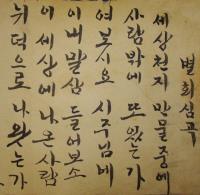 별회심곡
세상천지 만물중에
사람밖에 또있는가
여보시요 시주님네
이내말삼 들어보소
이세상에 나온사람
뉘덕으로 나왓는가